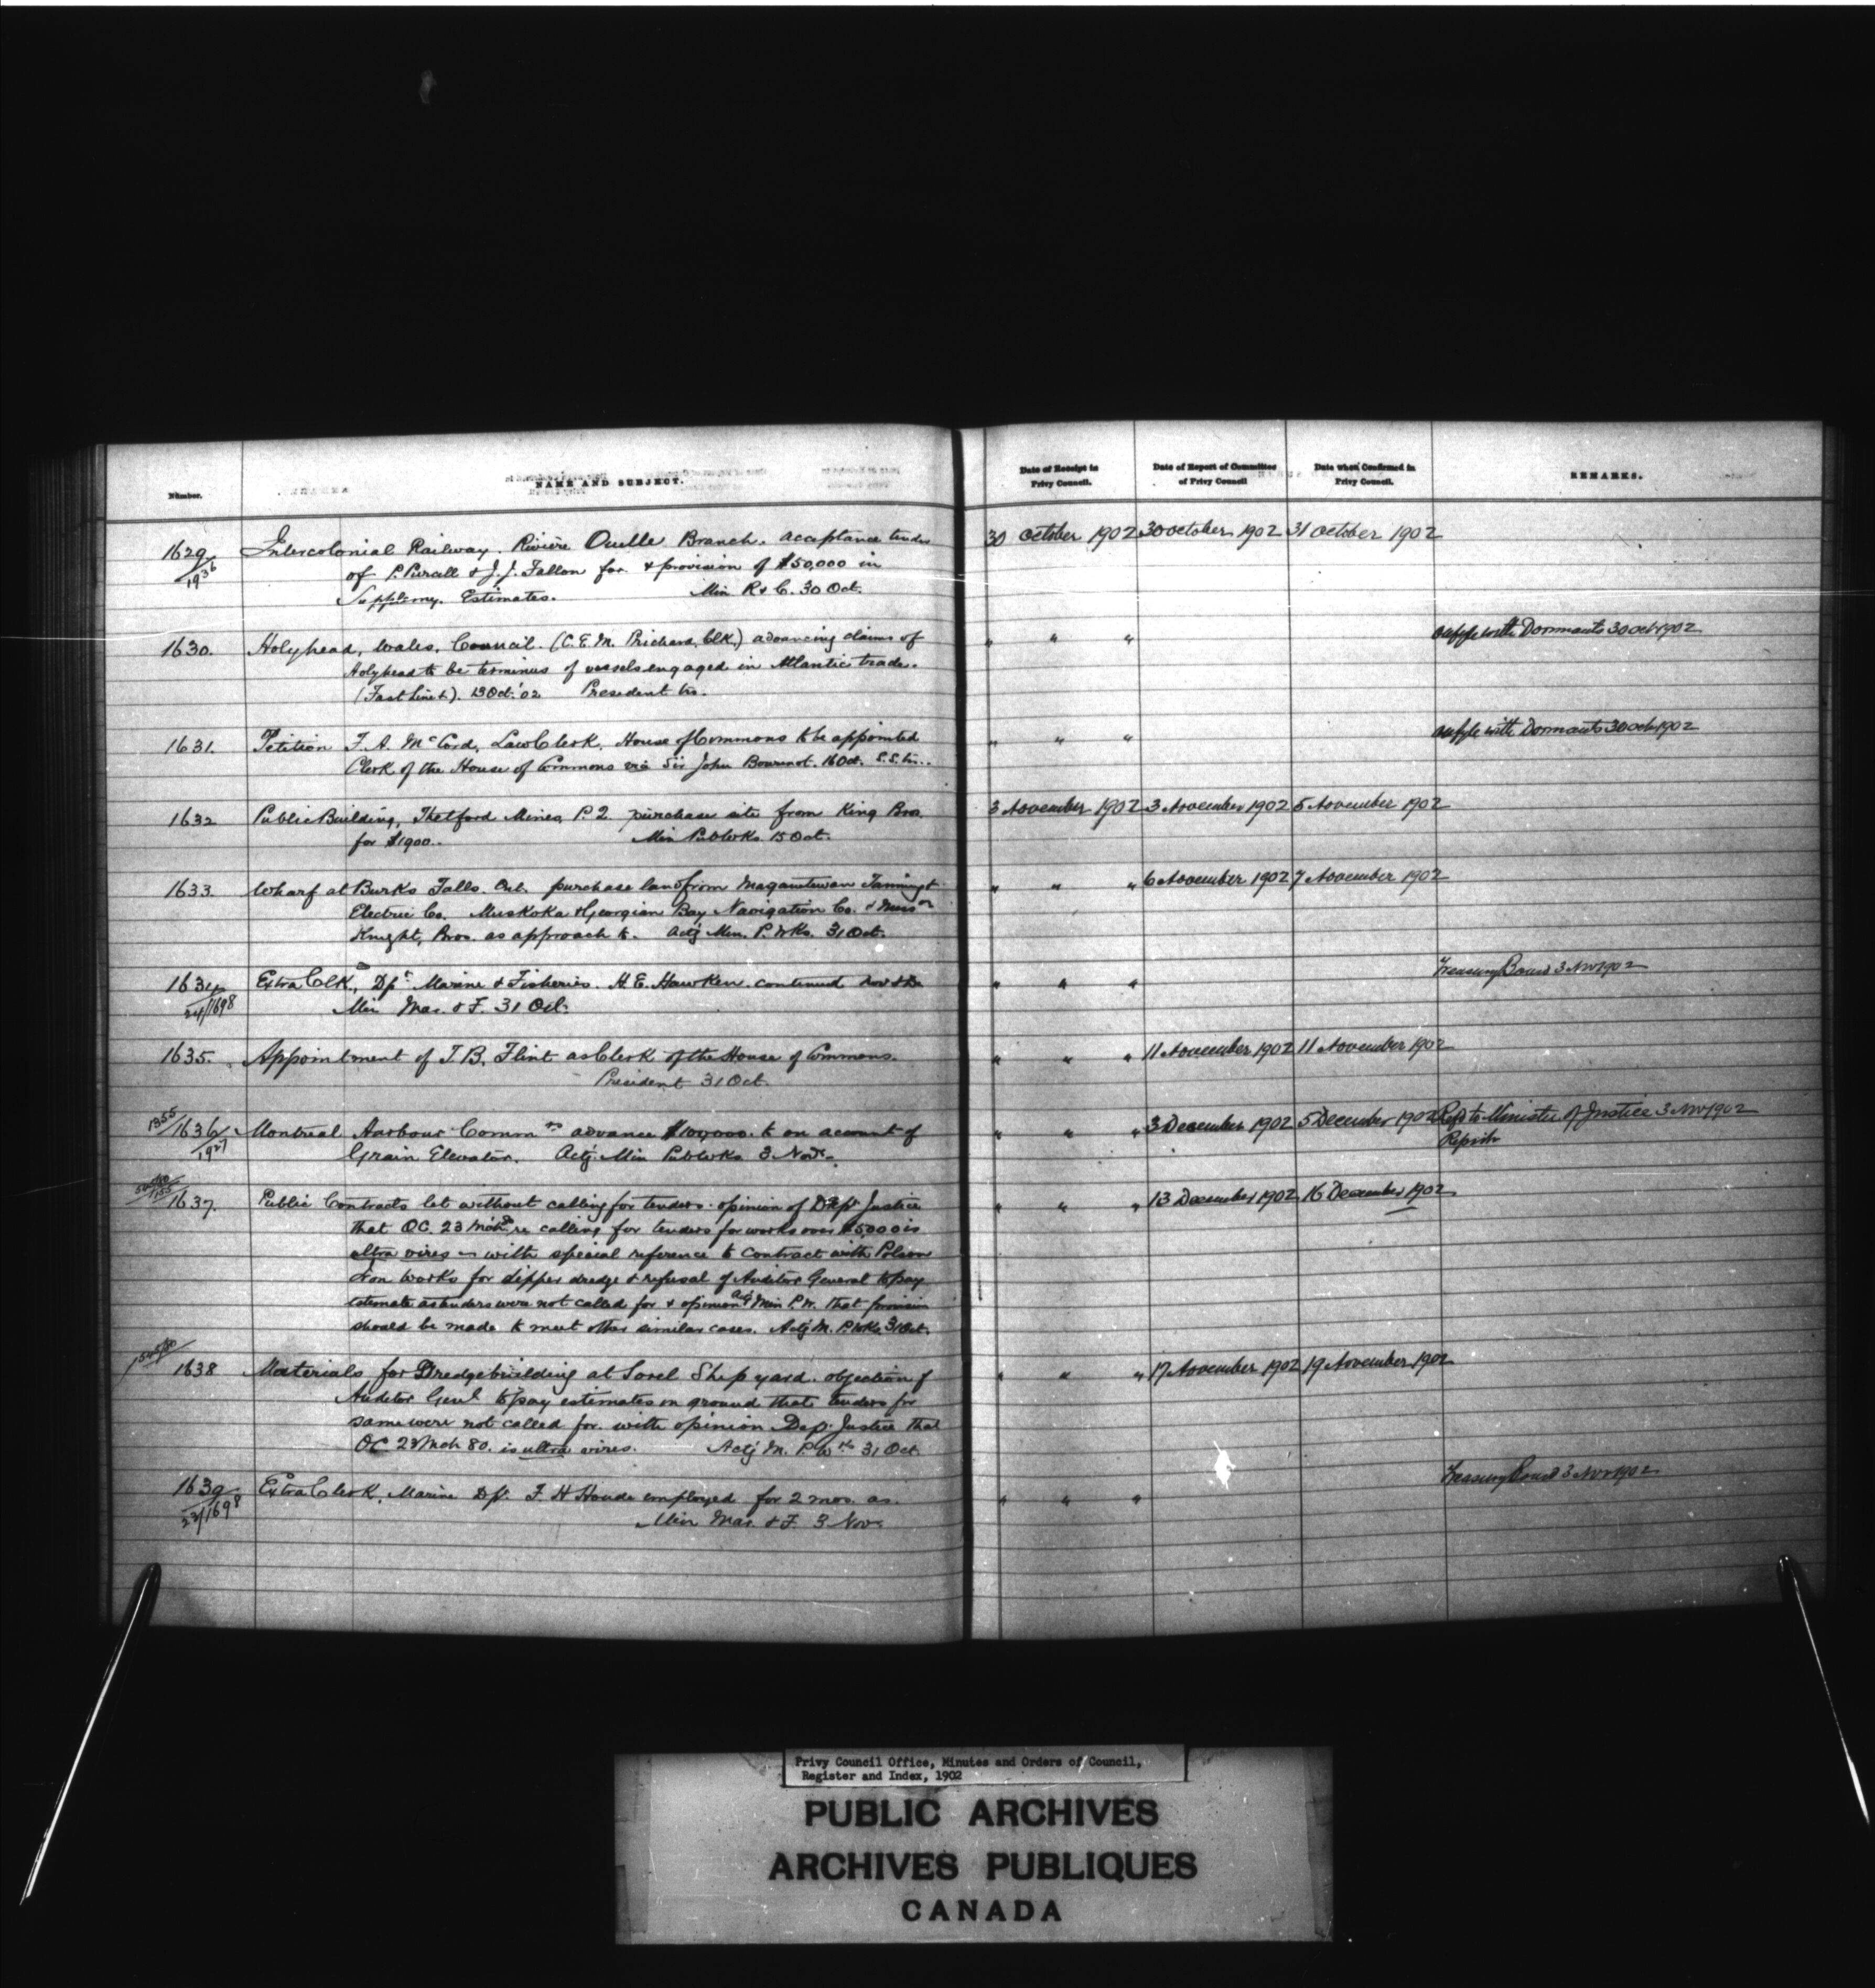 Number.
NAME AND SUBJECT.
Date of Receipt in
Privy Council.
Date of Report of Committee
of Privy Council
Date when Confirmed in
Privy Council.
REMARKS.
1629 Intercolonial Railway. Rivière Ouelle Branch. acceptance tender 30 October 1902 30 October 1902 31 October 1902
1936 of P. Purcell & J. J. Fallon for & provision of $50,000 in
Supplmy. Estimates. Min R & C. 30 Oct.
1630. Holyhead, Wales, Council. (C. E. M. Prichard, Clk.) advancing claims of " " " 30 Oct 1902
Holyhead to be terminus of vessels engaged in Atlantic trade. with Dormants
(Fast Line &). 13 Oct. '02 President tr.
1631. Petition F. A. McCord, Law Clerk, House of Commons to be appointed " " " with Dormants 30 Oct 1902
Clerk of the House of Commons vice Sir John Bourinot. 16 Oct. S.S. tr.
1632 Public Building, Thetford Mines, P.Q. purchase site from King Bros. 3 November 1902 3 November 1902 5 November 1902
for $1900. Min Pub Wks 15 Oct.
1633. Wharf at Burks Falls. Ont. purchase land from Maganetewan Tanning & " " " 6 November 1902 7 November 1902
Electric Co. Muskoka & Georgian Bay Navigation Co. &
Knight, Bros. as approach to. Actg Min. P. Wks. 31 Oct.
1634 Extra Clk, Dpt Marine & Fisheries. H. E. Hawken. continued Nov & De " " " Treasury Board 3 Nov 1902
24/1698 Min Mar. & F. 31 Oct.
1635. Appointment of T. B. Flint as Clerk of the House of Commons. " " " 11 November 1902 11 November 1902
President 31 Oct.
1355/1636 Montreal Harbour Commrs advance $100,000. to on account of " " " 3 December 1902 5 December 1902 Refd to Minister of Justice 3 Nov 1902
1927 Grain Elevator. Actg. Min Pub Wks 3 Nov.
1637. Public Contracts let without calling for tenders. opinion of Dept Justice " " " 13 December 1902 16 December 1902
that OC. 23 Mch re calling for tenders for works over $5,000 is
ultra vires - with special reference to contract with Polson
Iron Works for dipper dredge & refusal of Auditor General to pay
estimate as tenders were not called for & opinion actg Min P.W. that provision
should be made to meet other similar cases. Actg M. P. Wks 31 Oct.
1638 Materials for Dredgebuilding at Sorel Shipyard. objection of " " " 17 November 1902 19 November 1902
Auditor Genl to pay estimates on ground that tenders for
same were not called for. with opinion Dep. Justice that
OC 23 Mch 80. is ultra vires. Actg M. P. Wks 31 Oct
1639. Extra Clerk, Marine Dpt. F. H Houde employed for 2 mos. as " " " Treasury Board 3 Nov 1902
23/1698 Min Mar. & F. 3 Nov.
Privy Council Office, Minutes and Orders of Council,
Register and Index, 1902
PUBLIC ARCHIVES
ARCHIVES PUBLIQUES
CANADA